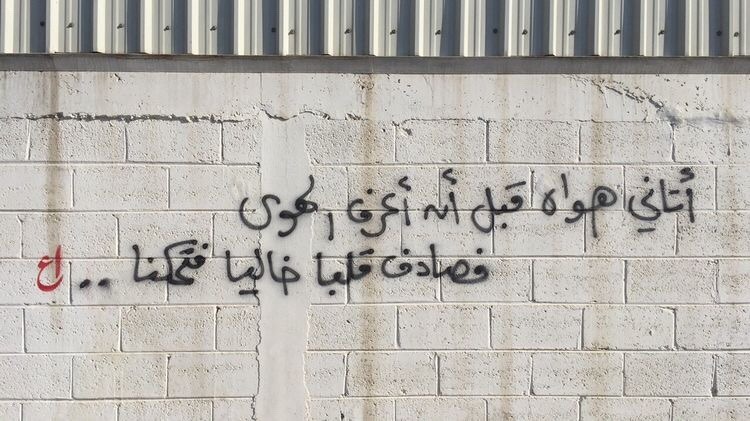 أتاني هواه قبل أن أعرف الهوى
فصادف قلبا خاليا فتمكنا .. اع